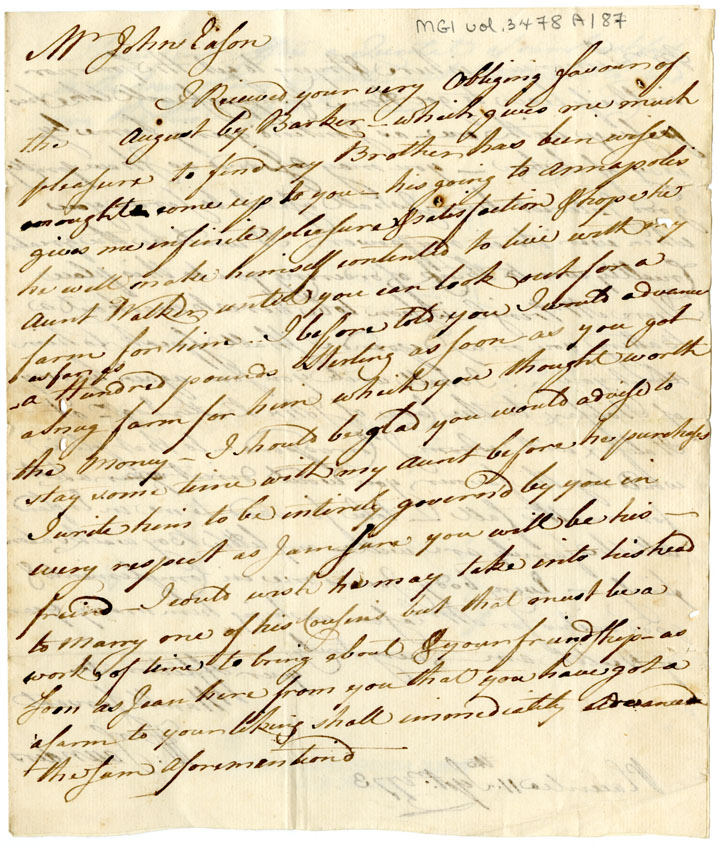 MG1 vol. 3478 A187
Mr John Eason
I Recived your very obliging favour of
the August by Barker – which gives me much
pleasure to find my Brother has been wise
enought come up to you – his going to Annapolis
gives me infinite pleasure & satisfaction & hope he
he will make himself contented to live with my
Aunt Walker until you can look out for a
farm for him. I before told you I would advance
as far as
a Hundred pounds Sterling as soon as you got
a snug farm for him which you thought worth
the Money – I should be glad you would advise to
stay some time with my Aunt before he purchases
I write him to be intirely govern'd by you in
every respect as I am sure you will be his –
friend – I could wish he may take into his head
to Marry one of his Cousens but that must be a
work of time to bring about & your friendship – as
Soon as I can here from you that you have got a
a farm to your liking shall immediately advance
the sum aforementiond